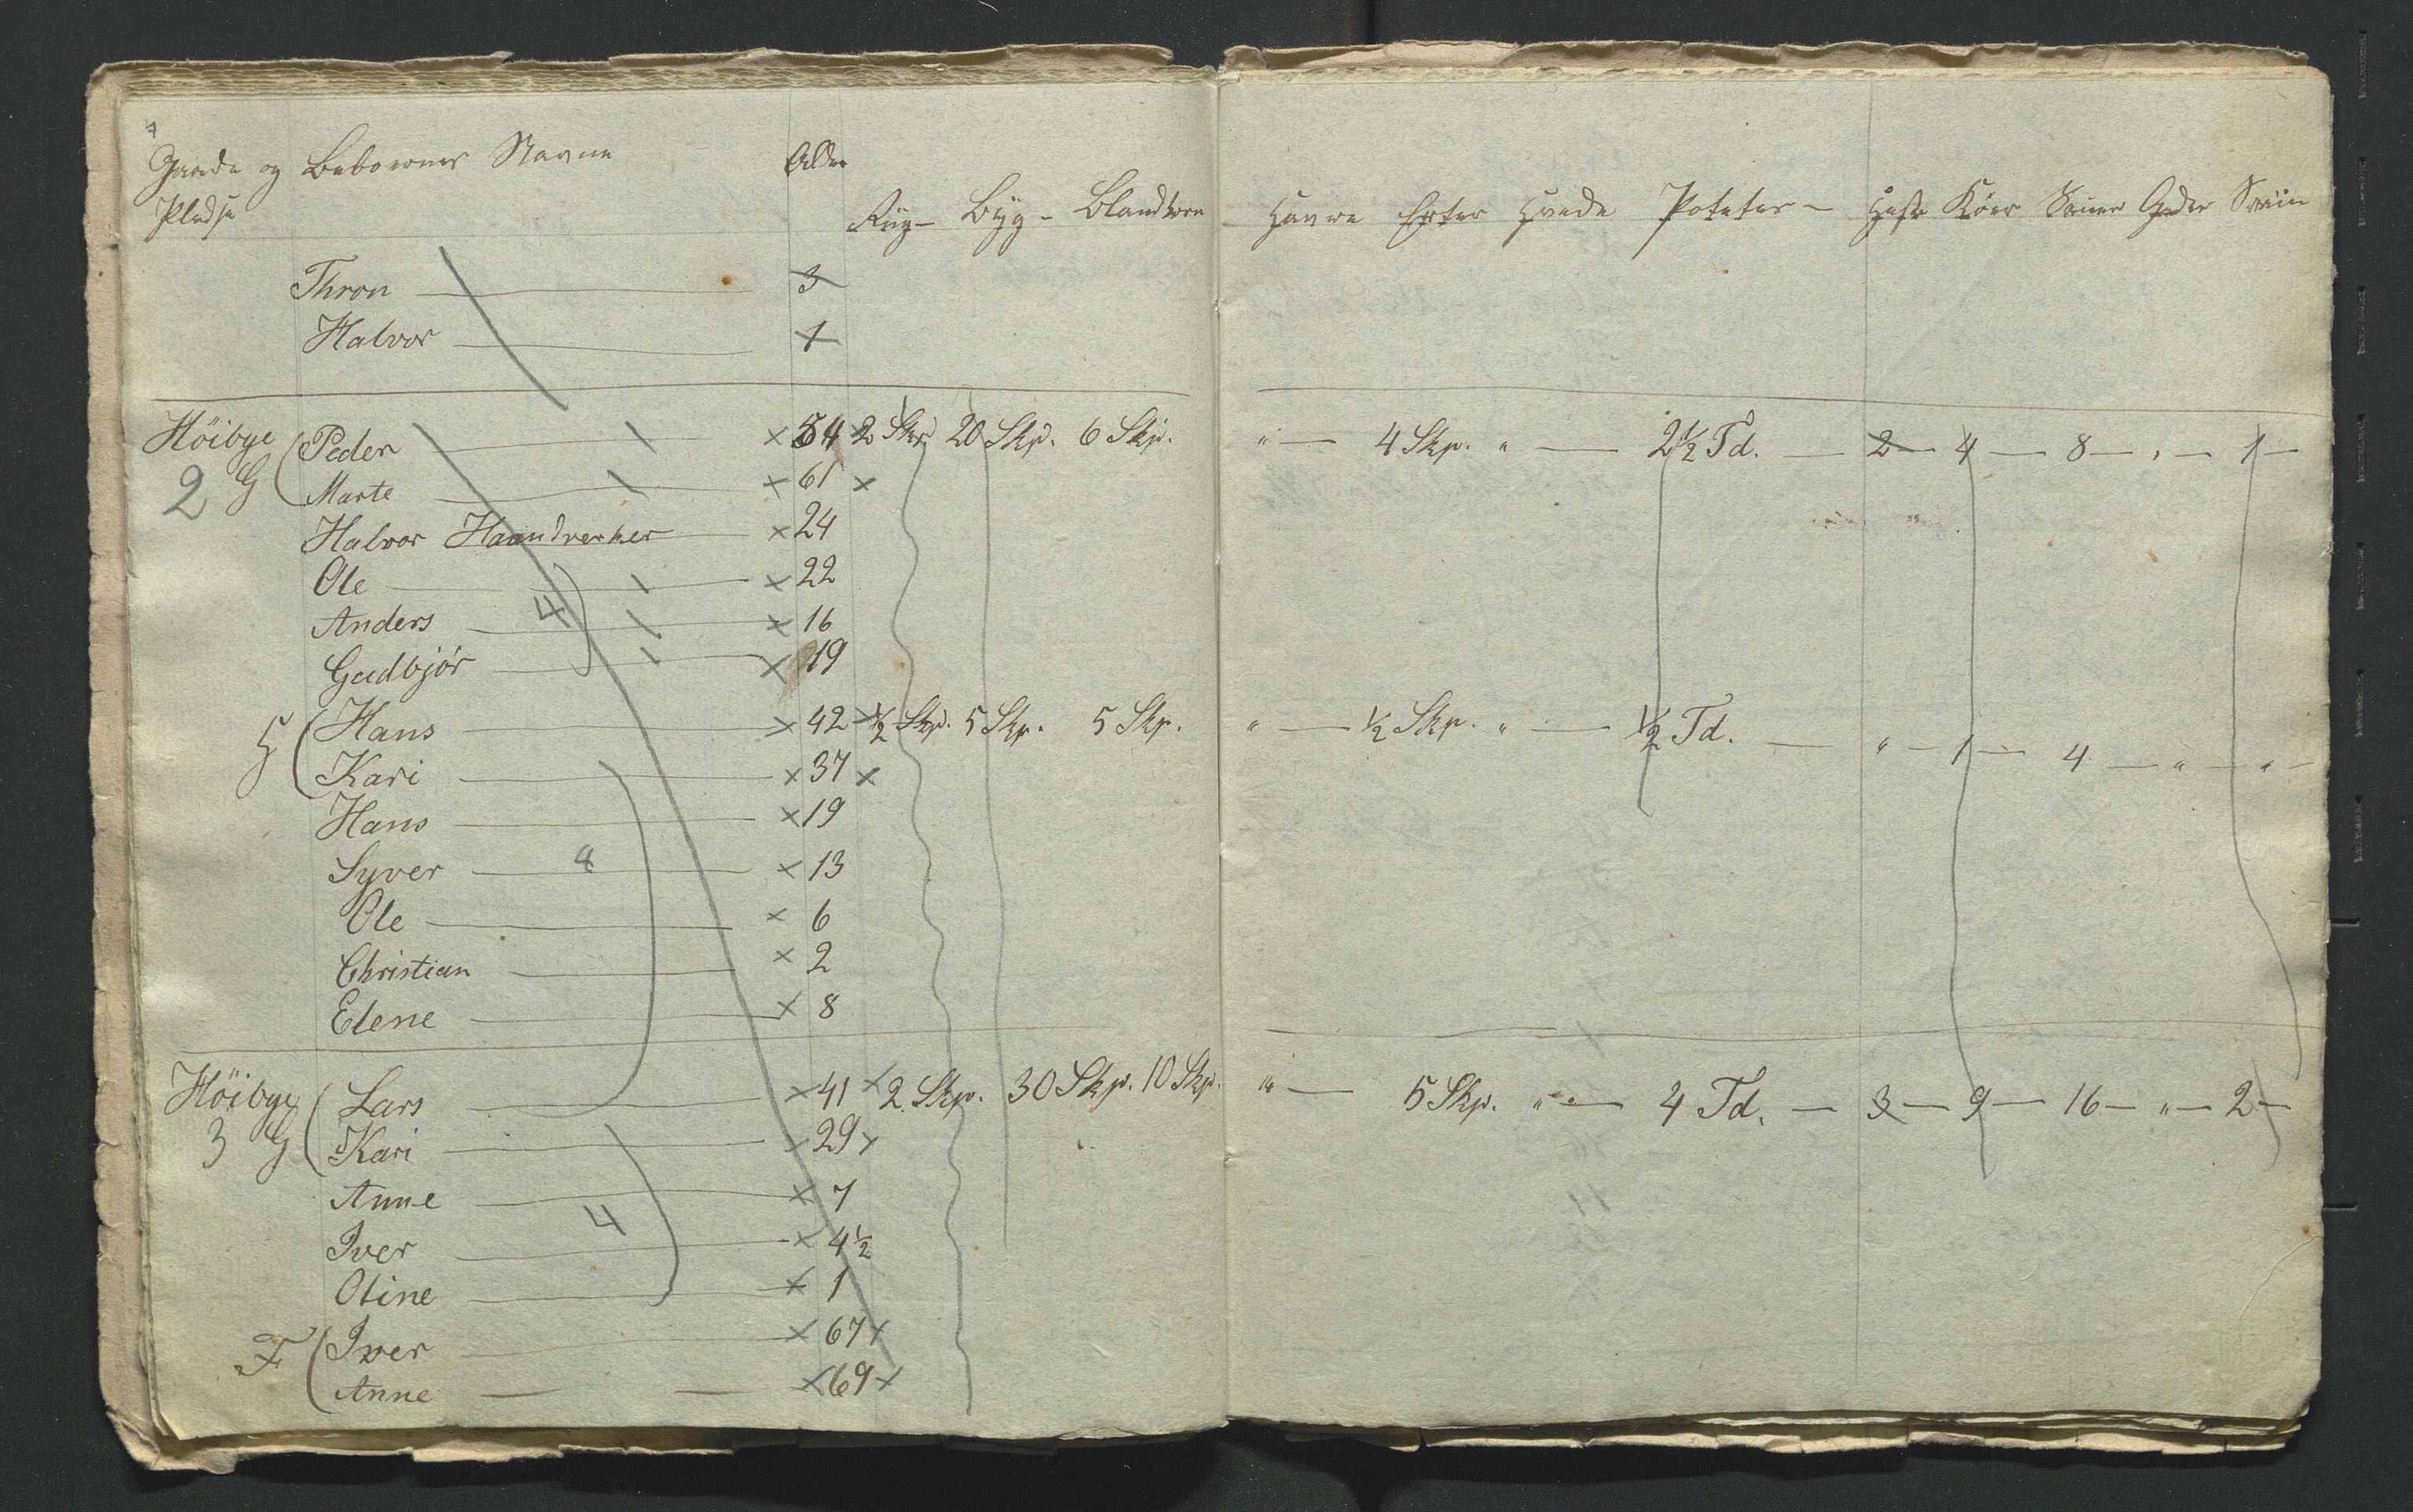 Gaarde og Beboernes Navne Alder
Pladse Rug - Byg - Blandkorn Havre Erter Hvede Poteter - Heste Köer Souer Geder Sviin
Thron 3
Halvor 1
Höibye Peder 54 2 Skp. 20 Skp. 6 Skp. " 4 Skp. " 2½ Td. 2 4 8 " 1
2 G Marte 61
Halvor Haandverker 24
Ole 22
4
Anders 16
Gudbjör 19
G Hans 42 ½ Skp. 5 Skp. 5 Skp. " ½ Skp. " ½ Td. " 1 4 " "
Kari 37
Hans 19
Syver 4 13
Ole 6
Christian 2
Elene 8
Höibye Lars 41 2 Skp. 30 Skp. 10 Skp. " 5 Skp. " 4 Td. 3 9 16 " 2
3 G Kari 29
Anne 7
4
Iver 4½
Oline 1
F Iver 67
Anne 69